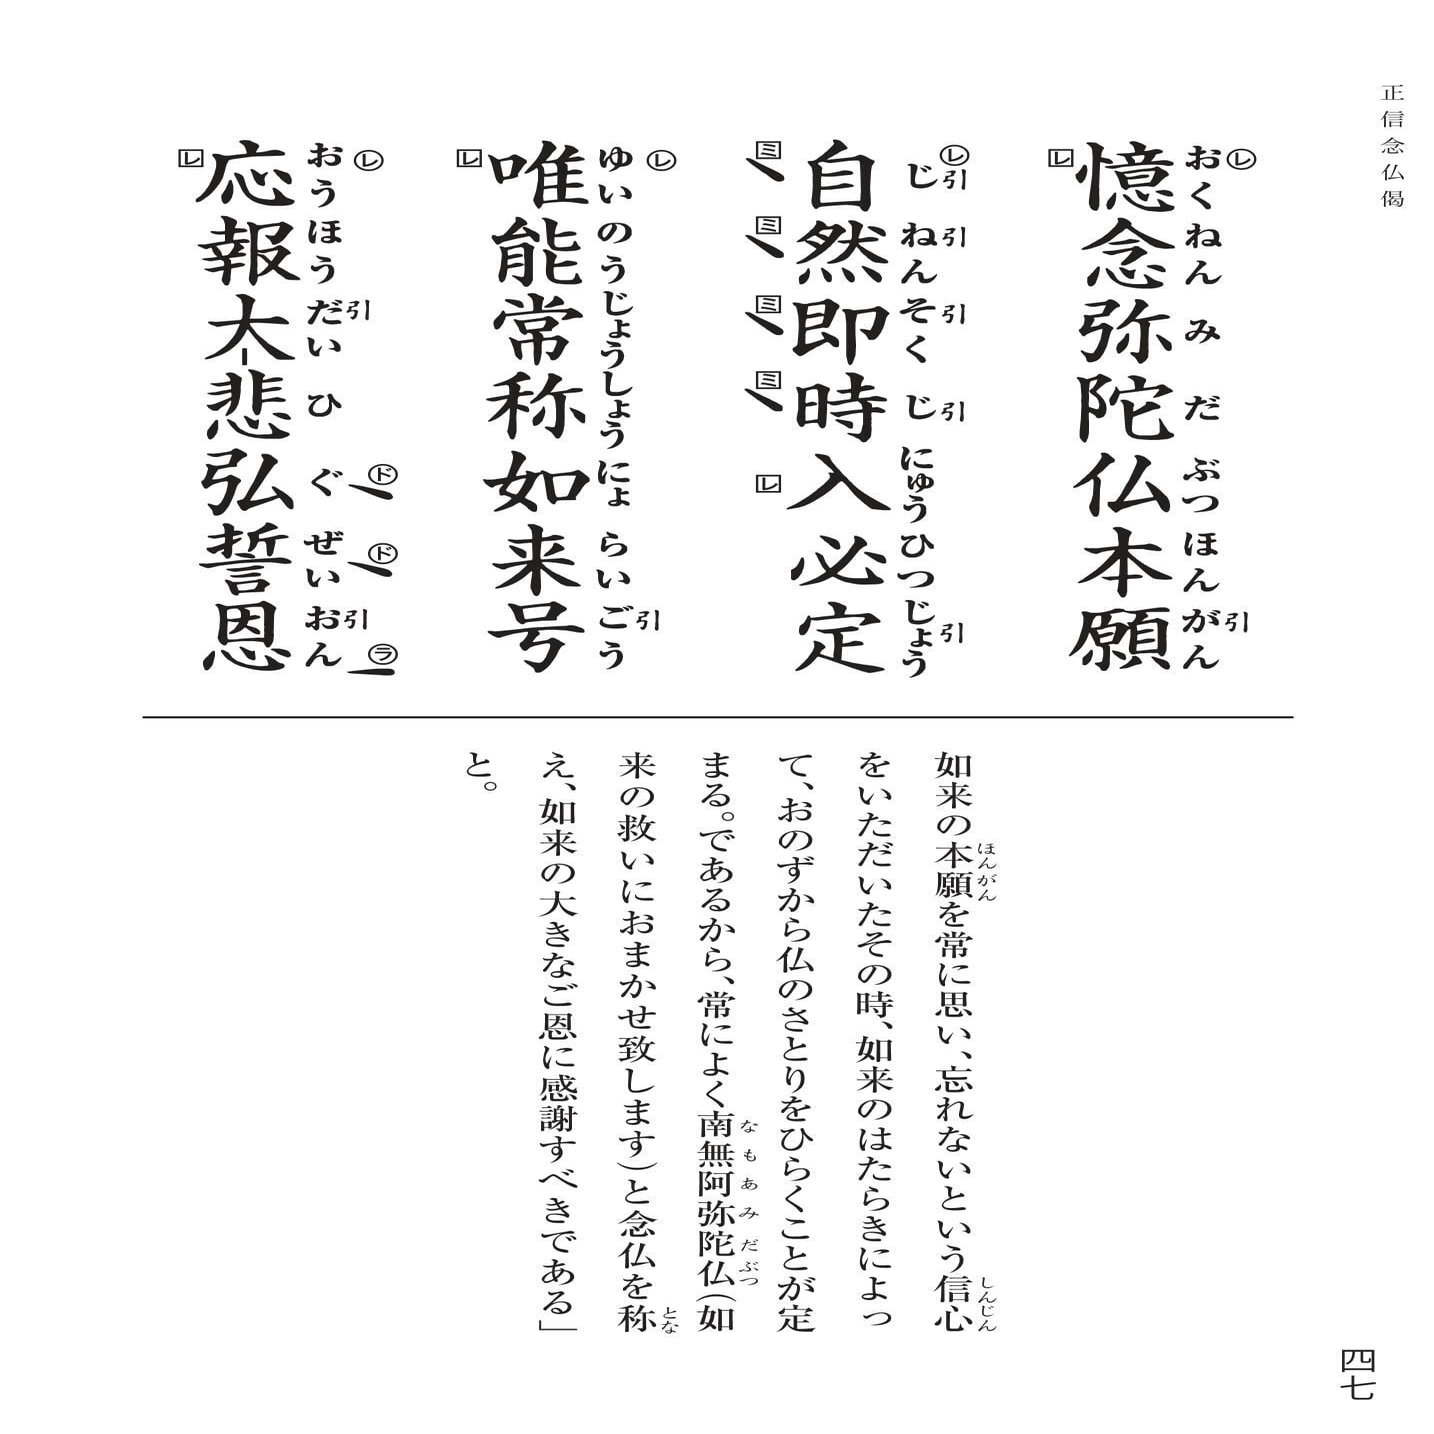 正信念仏偈
憶念弥陀仏本願
おくねんみだぶつほんがん
レ レ 引
自然即時入必定
じねんそくじにゅうひつじょう
レ引 引 引 引 引
ミ ミ ミ ミ レ
唯能常称如来号
ゆいのうじょうしょうにょらいごう
レ レ 引
応報大悲弘誓恩
おうほうだいひぐぜいおん
レ レ 引 ド ド 引 ラ
如来の本願を常に思い、忘れないという信心
ほんがん しんじん
をいただいたその時、如来のはたらきによっ
て、おのずから仏のさとりをひらくことが定
まる。であるから、常によく南無阿弥陀仏(如
なもあみだぶつ
来の救いにおまかせ致します)と念仏を称
とな
え、如来の大きなご恩に感謝すべきである」
と。
四七